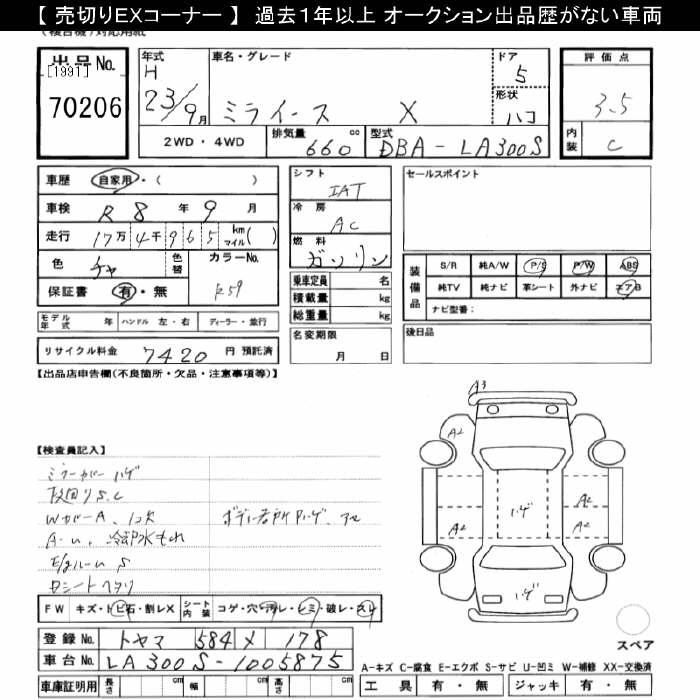 【 売切りEXコーナー 】 過去1年以上 オークション出品歴がない車両
(複合機)対応用紙
出品No.
[1991]
70206
年式
H
23/9月
車名・グレード
ミライース X
ドア
5
形状
ハコ
評価点
3.5
内装
C
2WD・4WD
排気量
660 cc
型式
DBA-LA300S
車歴 自家用・( )
車検 R 8 年 9 月
走行 17万4千965 km マイル( )
色 チャ 色替 カラーNo.
保証書 有・無 R59
モデル年式 年 ハンドル 左・右 ディーラー・並行
リサイクル料金 7420 円 預託済
シフト
IAT
冷房
AC
燃料
ガソリン
乗車定員 名
積載量 kg
総重量 kg
名変期限
月 日
セールスポイント
装備品
S/R 純A/W P/S P/W ABS
純TV 純ナビ 革シート 外ナビ エアB
ナビ型番:
後日品
【出品店申告欄(不良箇所・欠品・注意事項等)】
【検査員記入】
ミラーカバー ハゲ
下回りS.C
WカバーA、コケ
ボディ各所Pハゲ、
冷却水もれ
E/gルーム S
FW キズ・トビ石・割レX シート内装 コゲ・穴・汚レ・シミ・破レ・スレ
登録No. トヤマ 584 メ 178
車台No. LA300S-1005875
車庫証明用 長さ cm 幅 cm 高さ cm
A3
A2
A2
A2
A2
A2
ハゲ
ハゲ
スペア
A-キズ C-腐食 E-エクボ S-サビ U-凹ミ W-補修 XX-交換済
工具 有・無 ジャッキ 有・無